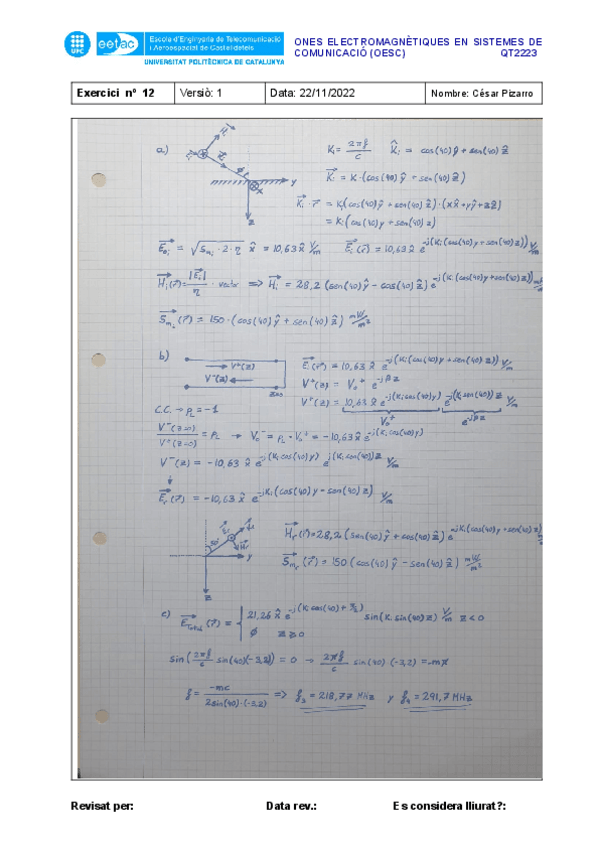 UPC
eetac
Escola d'Enginyeria de Telecomunicació
i Aeroespacial de Castelldefels
UNIVERSITAT POLITÈCNICA DE CATALUNYA
ONES ELECTROMAGNÈTIQUES EN SISTEMES DE
COMUNICACIÓ (OESC) QT2223
Exercici nº 12 Versiò: 1 Data: 22/11/2022 Nombre: César Pizarro
a)
y
x
z
K_i = 2πf/c   K̂_i = cos(40)ŷ + sen(40)ẑ
K⃗_i = K·(cos(40)ŷ + sen(40)ẑ)
K⃗_i · r⃗ = K_i(cos(40)ŷ + sen(40)ẑ)·(xx̂+yŷ+zẑ)
= K_i(cos(40)y + sen(40)z)
E⃗_oi = √(S_mi·2·η) x̂ = 10,63 x̂ V/m   E⃗_i(r⃗) = 10,63 x̂ e^-j(K_i(cos(40)y+sen(40)z)) V/m
H⃗_i(r⃗) = |E⃗_i|/η · vector => H⃗_i = 28,2 (sen(40)ŷ − cos(40)ẑ) e^-j(K_i(cos(40)y+sen(40)z)) mA/m
S⃗_mi(r⃗) = 150·(cos(40)ŷ + sen(40)ẑ) mW/m²
b)
V⁺(z)
V⁻(z)
z=0
E⃗_i(r⃗) = 10,63 x̂ e^-j(K_i(cos(40)y + sen(40)z)) V/m
V⁺(z) = V_o⁺ e^-jβz
V⁺(z) = 10,63 x̂ e^-j(K_i cos(40)y) e^-j(K_i sen(40))z V/m
V_o⁺ e^-jβz
C.C. → ρ_L = −1
V⁻(z=0)/V⁺(z=0) = ρ_L → V_o⁻ = ρ_L · V_o⁺ = −10,63 x̂ e^-j(K_i cos(40)y)
V⁻(z) = −10,63 x̂ e^-j(K_i cos(40)y) e^j(K_i cos(40))z V/m
E⃗_r(r⃗) = −10,63 x̂ e^-jK_i(cos(40)y − sen(40)z) V/m
y
z
H⃗_r(r⃗) = 28,2 (sen(40)ŷ + cos(40)ẑ) e^-jK_i(cos(40)y−sen(40)z)
S⃗_mr(r⃗) = 150 (cos(40)ŷ − sen(40)ẑ) mW/m²
c) E⃗_Total(r⃗) = { 21,26 x̂ e^-j(K_i cos(40) + π/2) sin(K_i sin(40)z) V/m z < 0
∅ z ≥ 0
sin(2πf/c sin(40)(−3,2)) = 0 → 2πf/c sin(40)·(−3,2) = −mπ
f = −mc/2sin(40)·(−3,2) => f₃ = 218,77 MHz y f₄ = 291,7 MHz
Revisat per: Data rev.: Es considera lliurat?: